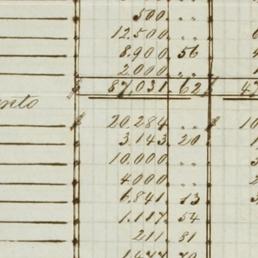 500. " "
12.500. " "
8.900. 56
2.000. " "
87.031. 62
20.284. " "
3.143. 20
10.000. " "
4.000. " "
6.841. 13
1.117. 54
211. 81